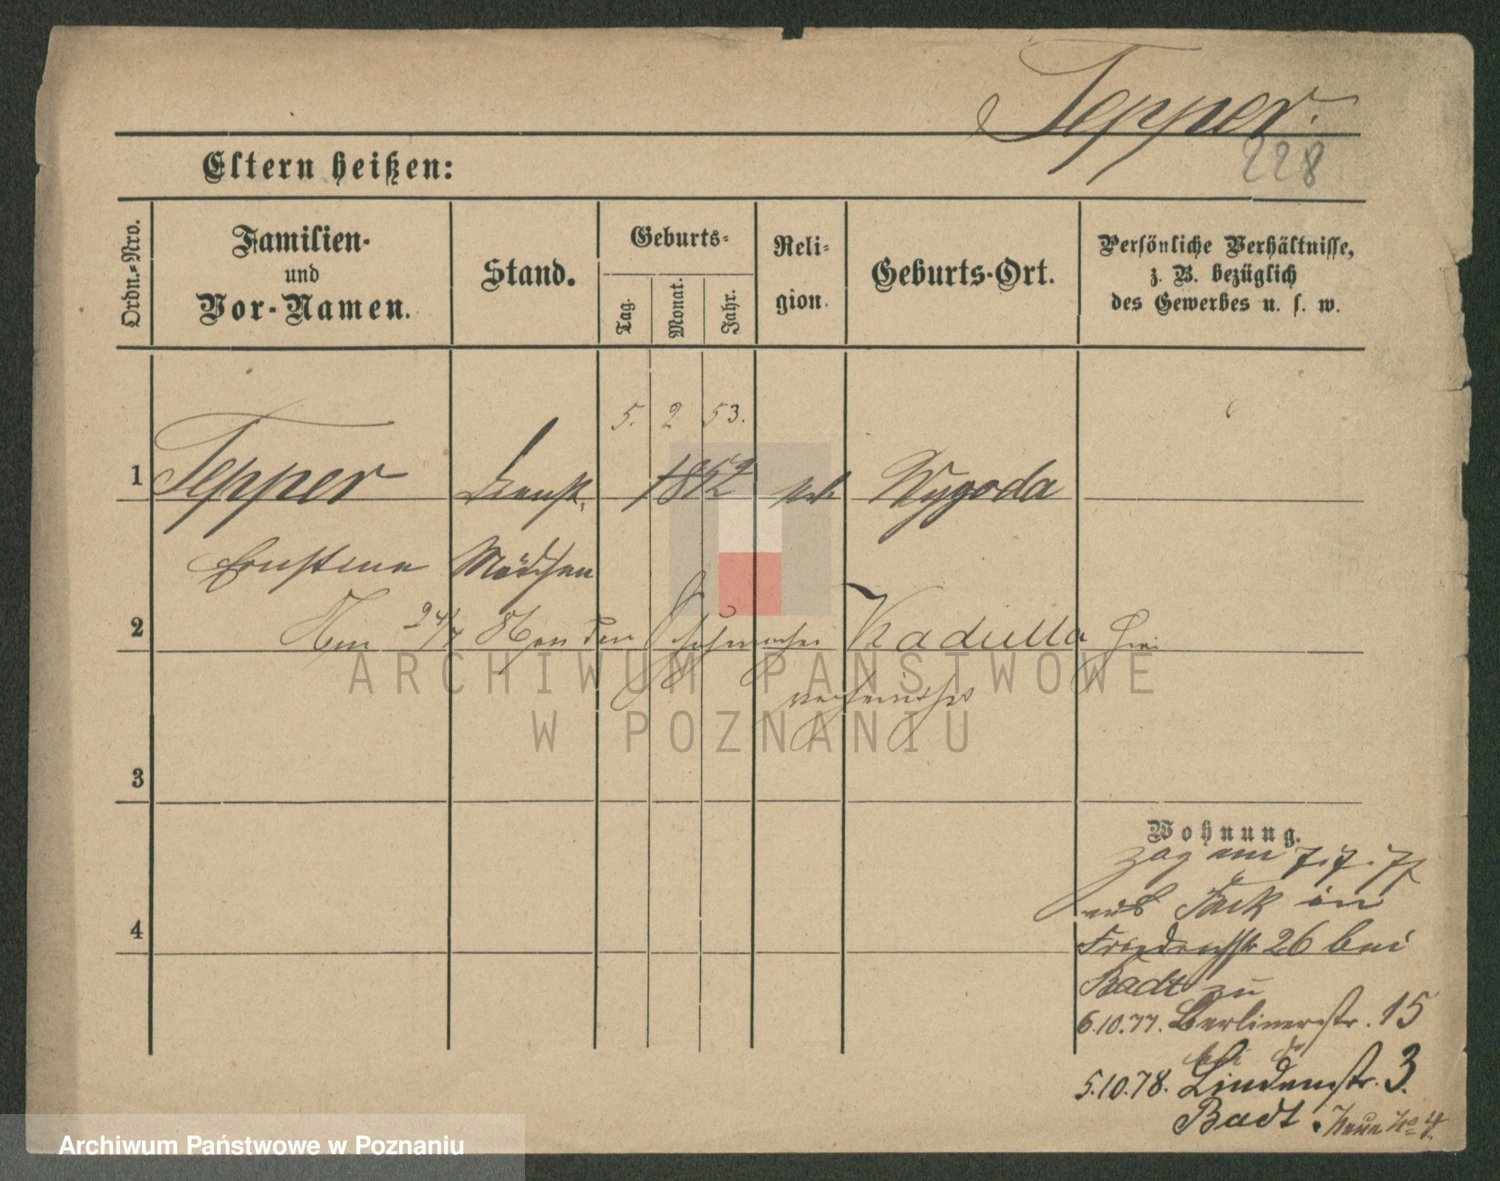 Tepper.
228
Eltern heißen:
Ordn.-Nro.
Familien-
und
Vor-Namen.
Stand.
Geburts-
Tag.
Monat.
Jahr.
Reli-
gion.
Geburts-Ort.
Persönliche Verhältnisse,
z. B. bezüglich
des Gewerbes u. s. w.
5. 2 53.
1 Tepper Dienst 1852 Wygoda
Ernstine Mädchen
2 24/7 den Schuhmacher Kadulla hier
verheirathet
ARCHIWUM PAŃSTWOWE
W POZNANIU
3
Wohnung.
zog am 7.7.77
aus in
4
Friedrichstr 26 bei
Badt zu
6.10.77. Berlinerstr. 15
bei
5.10.78. Lindenstr. 3.
Badt.
Archiwum Państwowe w Poznaniu